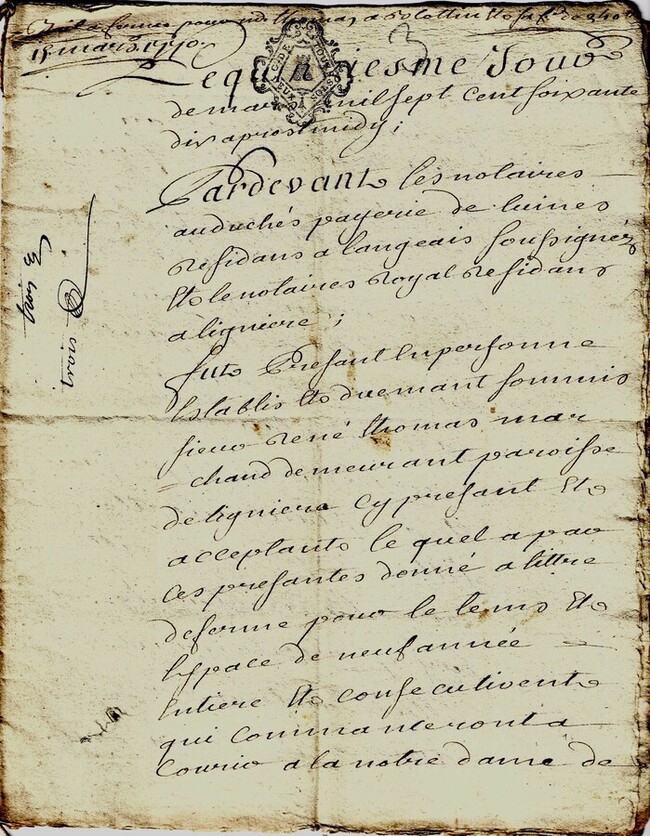 Bail a ferme pour rené thomas, a
15 mars 1770.
3
Le quinziesme Jour
de mars mil sept cent soixante
dix apres midy ;
Pardevant les notaires
au duchés payerie de luines
residans a langeais soussignéz
Et le notaires royal residans
a ligniere ;
fut Present En personne
Establis Et duemant soumis
sieur René thomas mar
= chand demeurant paroisse
de ligniere cy presant Et
acceptant le quel a par
ces presantes donné a littre
de ferme pour le tems Et
Espace de neuf année
Entiere Et consecutivent
qui commanteront a
courir a la notre dame de
trois
trois